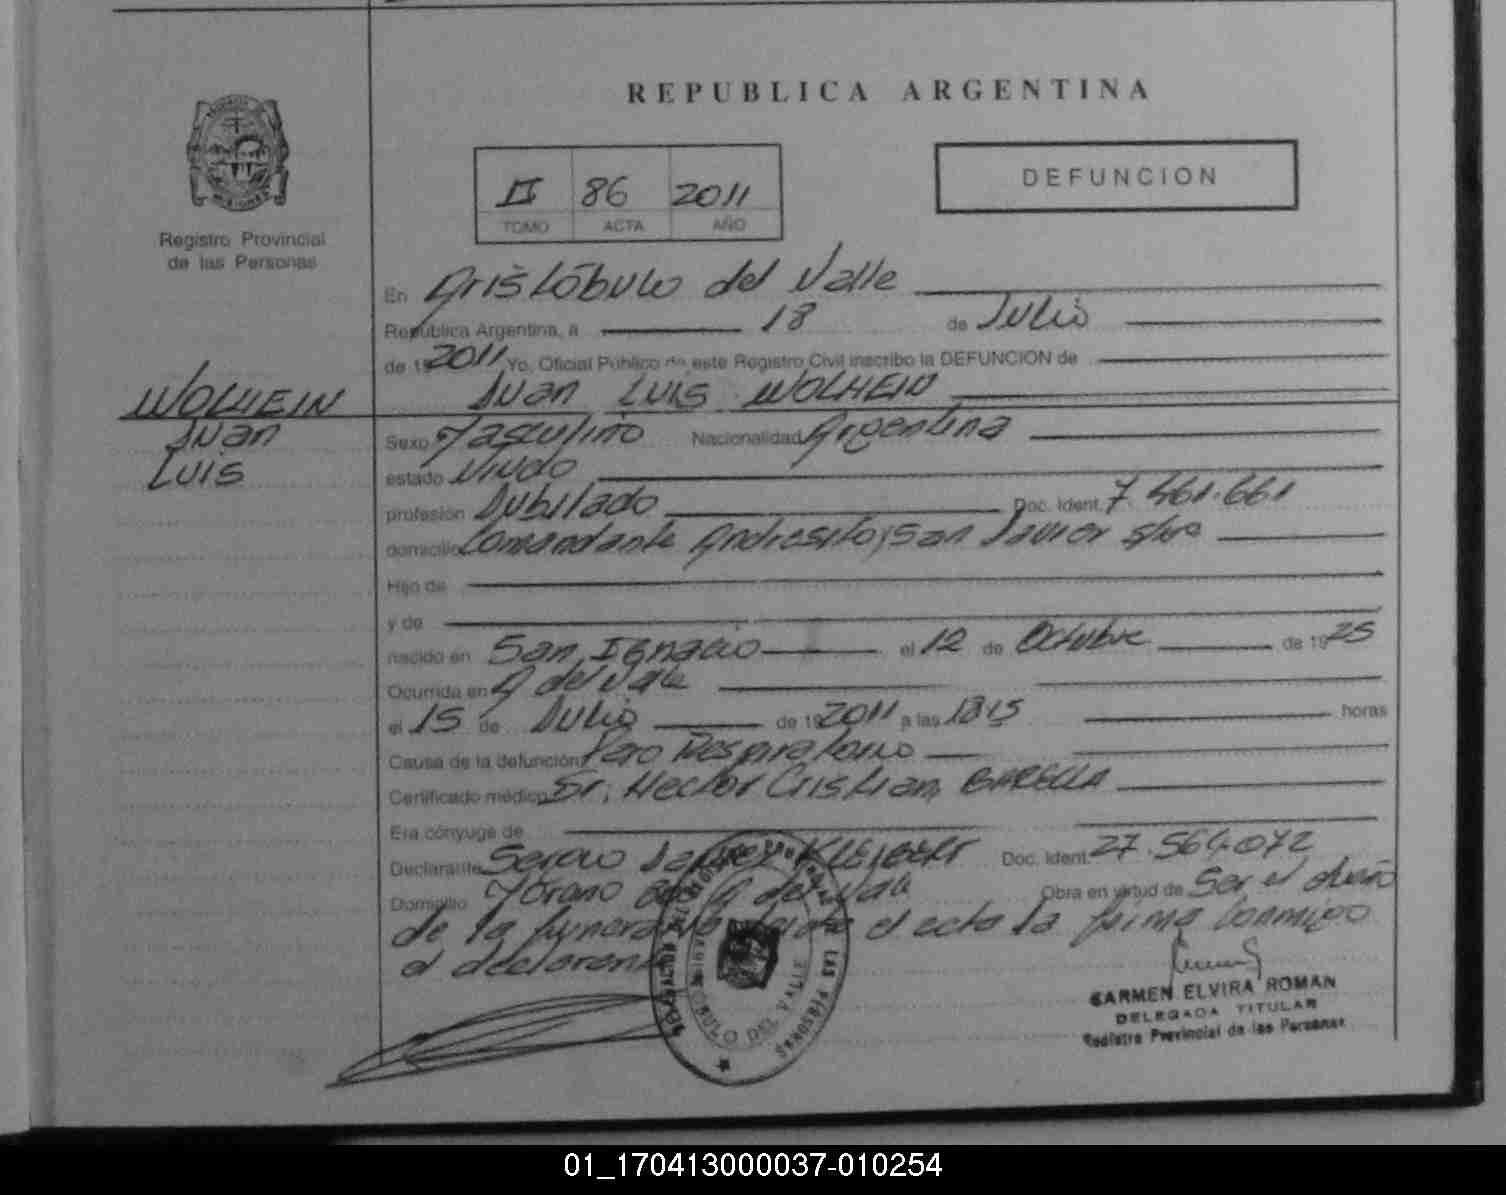 REPUBLICA ARGENTINA
MISIONES
Registro Provincial
de las Personas
II 86 2011
TOMO ACTA AÑO
DEFUNCION
En Aristóbulo del Valle
República Argentina, a 18 de Julio
de 19 2011 Yo, Oficial Público de este Registro Civil inscribo la DEFUNCION de
Juan Luis WOLHEIN
WOLHEIN
Juan
Luis
Sexo Masculino Nacionalidad Argentina
estado Viudo
profesión Jubilado Doc. Ident. 7.461.661
domicilio Comandante Andresito, San Javier
Hijo de
y de
nacido en San Ignacio el 12 de Octubre de 1925
Ocurrida en A del Valle
el 15 de Julio de 19 2011 a las 1815 horas
Causa de la defunción Paro Respiratorio
Certificado médico Dr. Hector Cristian BARELLA
Era cónyuge de
Declarante Sergio Javier Doc. Ident. 27.564.072
Domicilio A del Valle Obra en virtud de Ser el dueño
de la funeraria el acta la firma conmigo
el declarante
DELEGACION DEL REGISTRO PROVINCIAL DE LAS PERSONAS
ARISTOBULO DEL VALLE
CARMEN ELVIRA ROMAN
DELEGADA TITULAR
Registro Provincial de las Personas
01_170413000037-010254